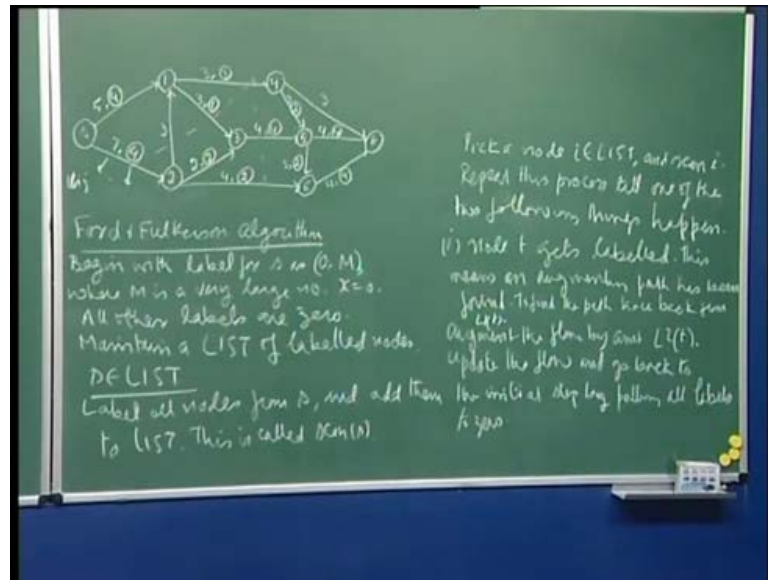 1
4
5, ④
3, ②
3, ①
3
3
4, ②
5
4, ②
6
7, ④
2
4, ②
Ford & Fulkerson Algorithm
Begin with label for s as (0, M)
where M is a very large no. X=0.
All other labels are zero.
Maintain a LIST of labelled nodes.
s ∈ LIST
Label all nodes from s, and add them
to LIST. This is called scan(s)
Pick a node i ∈ LIST, and scan i.
Repeat this process till one of the
two following things happen.
(i) Node t gets labelled. This
means an augmenting path has been
found. To find the path trace back from
Augment the flow by L2(t).
Update the flow and go back to
the initial step by putting all labels
to zero